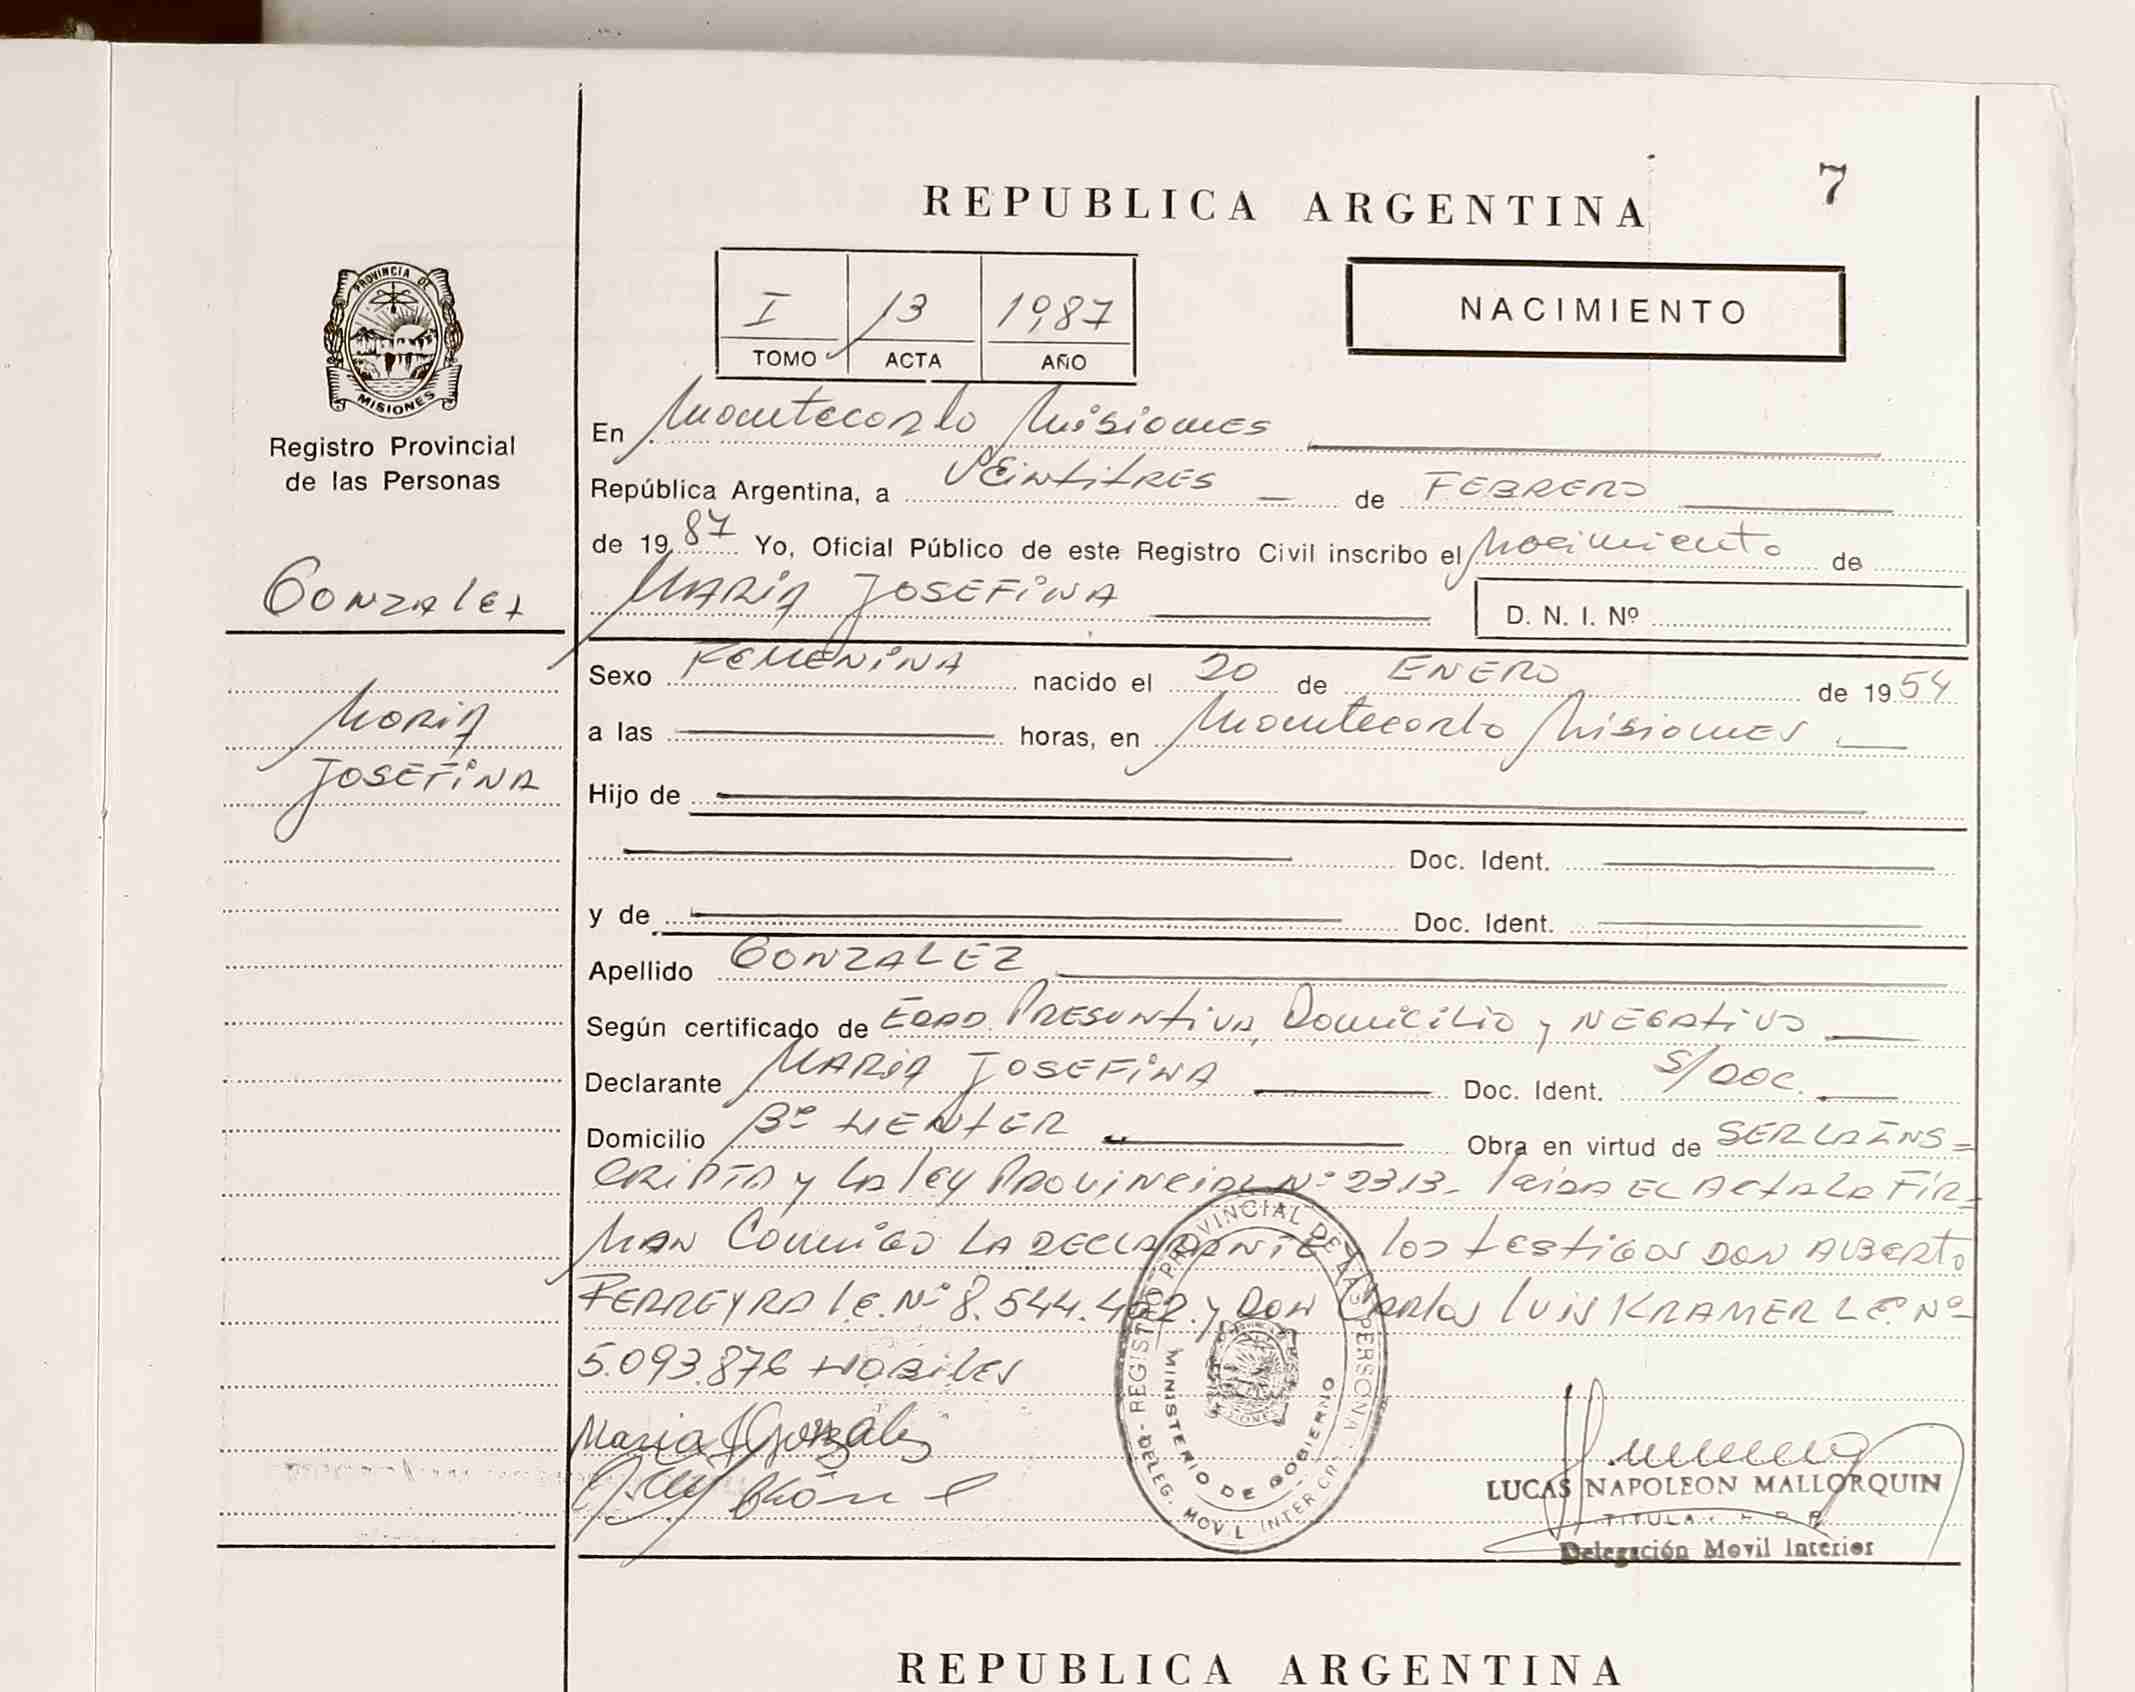 7
REPUBLICA ARGENTINA
I 13 1987
TOMO ACTA AÑO
NACIMIENTO
PROVINCIA DE
MISIONES
Registro Provincial
de las Personas
Gonzalez
Maria
Josefina
En Montecarlo Misiones
República Argentina, a Veintitres de FEBRERO
de 1987 Yo, Oficial Público de este Registro Civil inscribo el Nacimiento de
MARIA JOSEFINA D. N. I. Nº
Sexo FEMENINA nacido el 20 de ENERO de 1954
a las horas, en Montecarlo Misiones
Hijo de
Doc. Ident.
y de Doc. Ident.
Apellido GONZALEZ
Según certificado de EDAD PRESUNTIVA, Domicilio y NEGATIVO
Declarante MARIA JOSEFINA Doc. Ident. S/DOC.
Domicilio Bº Obra en virtud de SER LA INS=
CRIPTA y LA ley PROVINCIAL Nº 2313- leida EL ACTA LA FIR-
MAN Conmigo LA DECLARANTE y los testigos DON ALBERTO
FERREYRA l.E. Nº 8.544.402 y DON Carlos LUIS KRAMER L.E. Nº
5.093.876 HABILES
Maria J Gonzalez
REGISTRO PROVINCIAL DE LAS PERSONAS
MINISTERIO DE GOBIERNO
DELEG. MOVIL INTER
LUCAS NAPOLEON MALLORQUIN
TITULAR
Delegación Movil Interior
REPUBLICA ARGENTINA